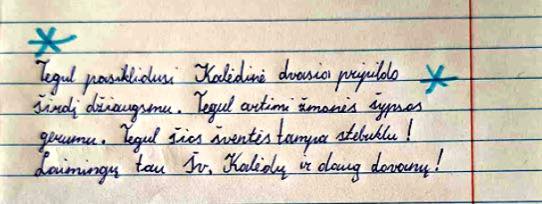 Tegul pasiklidusi Kalėdinė dvasia pripildo
širdį džiaugsmu. Tegul artimi žmonės šypsos
gerumu. Tegul šios šventės tampa stebuklu!
Laimingų tau Šv. Kalėdų ir daug dovanų!